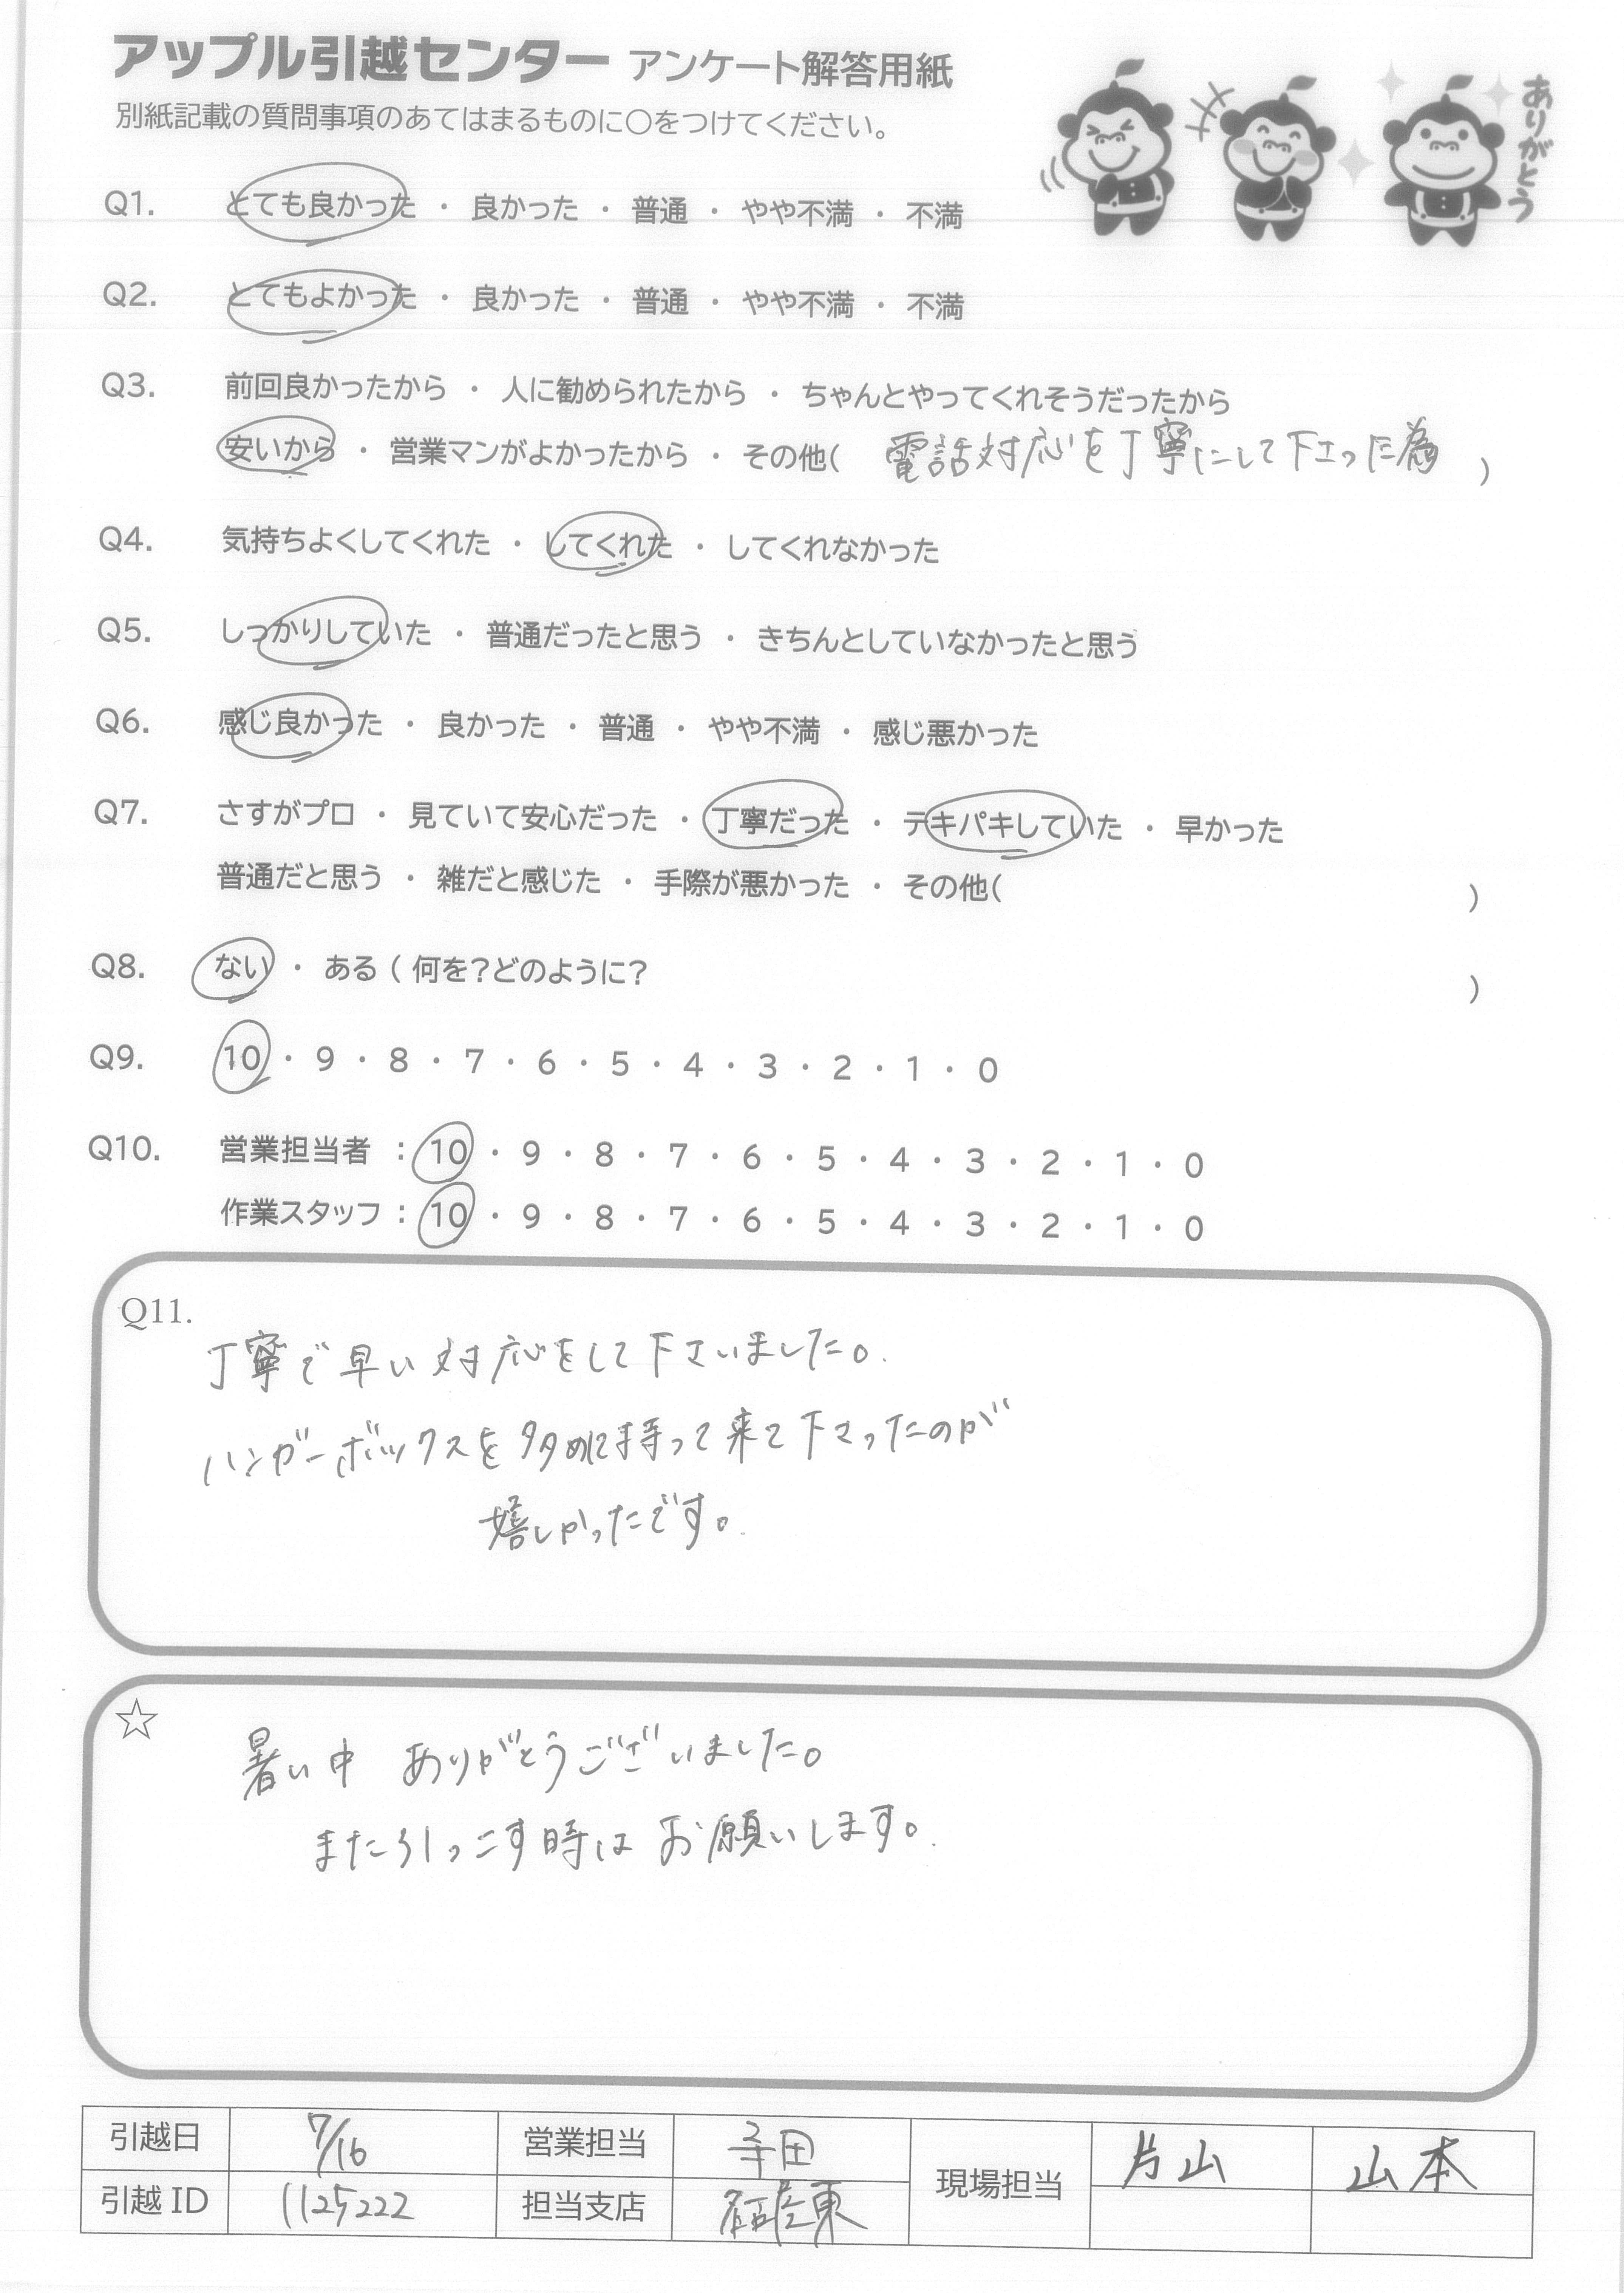 アップル引越センター アンケート解答用紙
別紙記載の質問事項のあてはまるものに○をつけてください。
ありがとう
Q1. とても良かった ・ 良かった ・ 普通 ・ やや不満 ・ 不満
Q2. とてもよかった ・ 良かった ・ 普通 ・ やや不満 ・ 不満
Q3. 前回良かったから ・ 人に勧められたから ・ ちゃんとやってくれそうだったから
安いから ・ 営業マンがよかったから ・ その他( 電話対応を丁寧にして下さった為 )
Q4. 気持ちよくしてくれた ・ してくれた ・ してくれなかった
Q5. しっかりしていた ・ 普通だったと思う ・ きちんとしていなかったと思う
Q6. 感じ良かった ・ 良かった ・ 普通 ・ やや不満 ・ 感じ悪かった
Q7. さすがプロ ・ 見ていて安心だった ・ 丁寧だった ・ テキパキしていた ・ 早かった
普通だと思う ・ 雑だと感じた ・ 手際が悪かった ・ その他( )
Q8. ない ・ ある ( 何を?どのように? )
Q9. 10 ・ 9 ・ 8 ・ 7 ・ 6 ・ 5 ・ 4 ・ 3 ・ 2 ・ 1 ・ 0
Q10. 営業担当者 : 10 ・ 9 ・ 8 ・ 7 ・ 6 ・ 5 ・ 4 ・ 3 ・ 2 ・ 1 ・ 0
作業スタッフ : 10 ・ 9 ・ 8 ・ 7 ・ 6 ・ 5 ・ 4 ・ 3 ・ 2 ・ 1 ・ 0
Q11.
丁寧で早い対応をして下さいました。
ハンガーボックスを多めに持って来て下さったのが
嬉しかったです。
☆
暑い中 ありがとうございました。
また引っこす時は お願いします。
引越日 7/16 営業担当 寺田 現場担当 片山 山本
引越 ID 1125222 担当支店 名古屋東